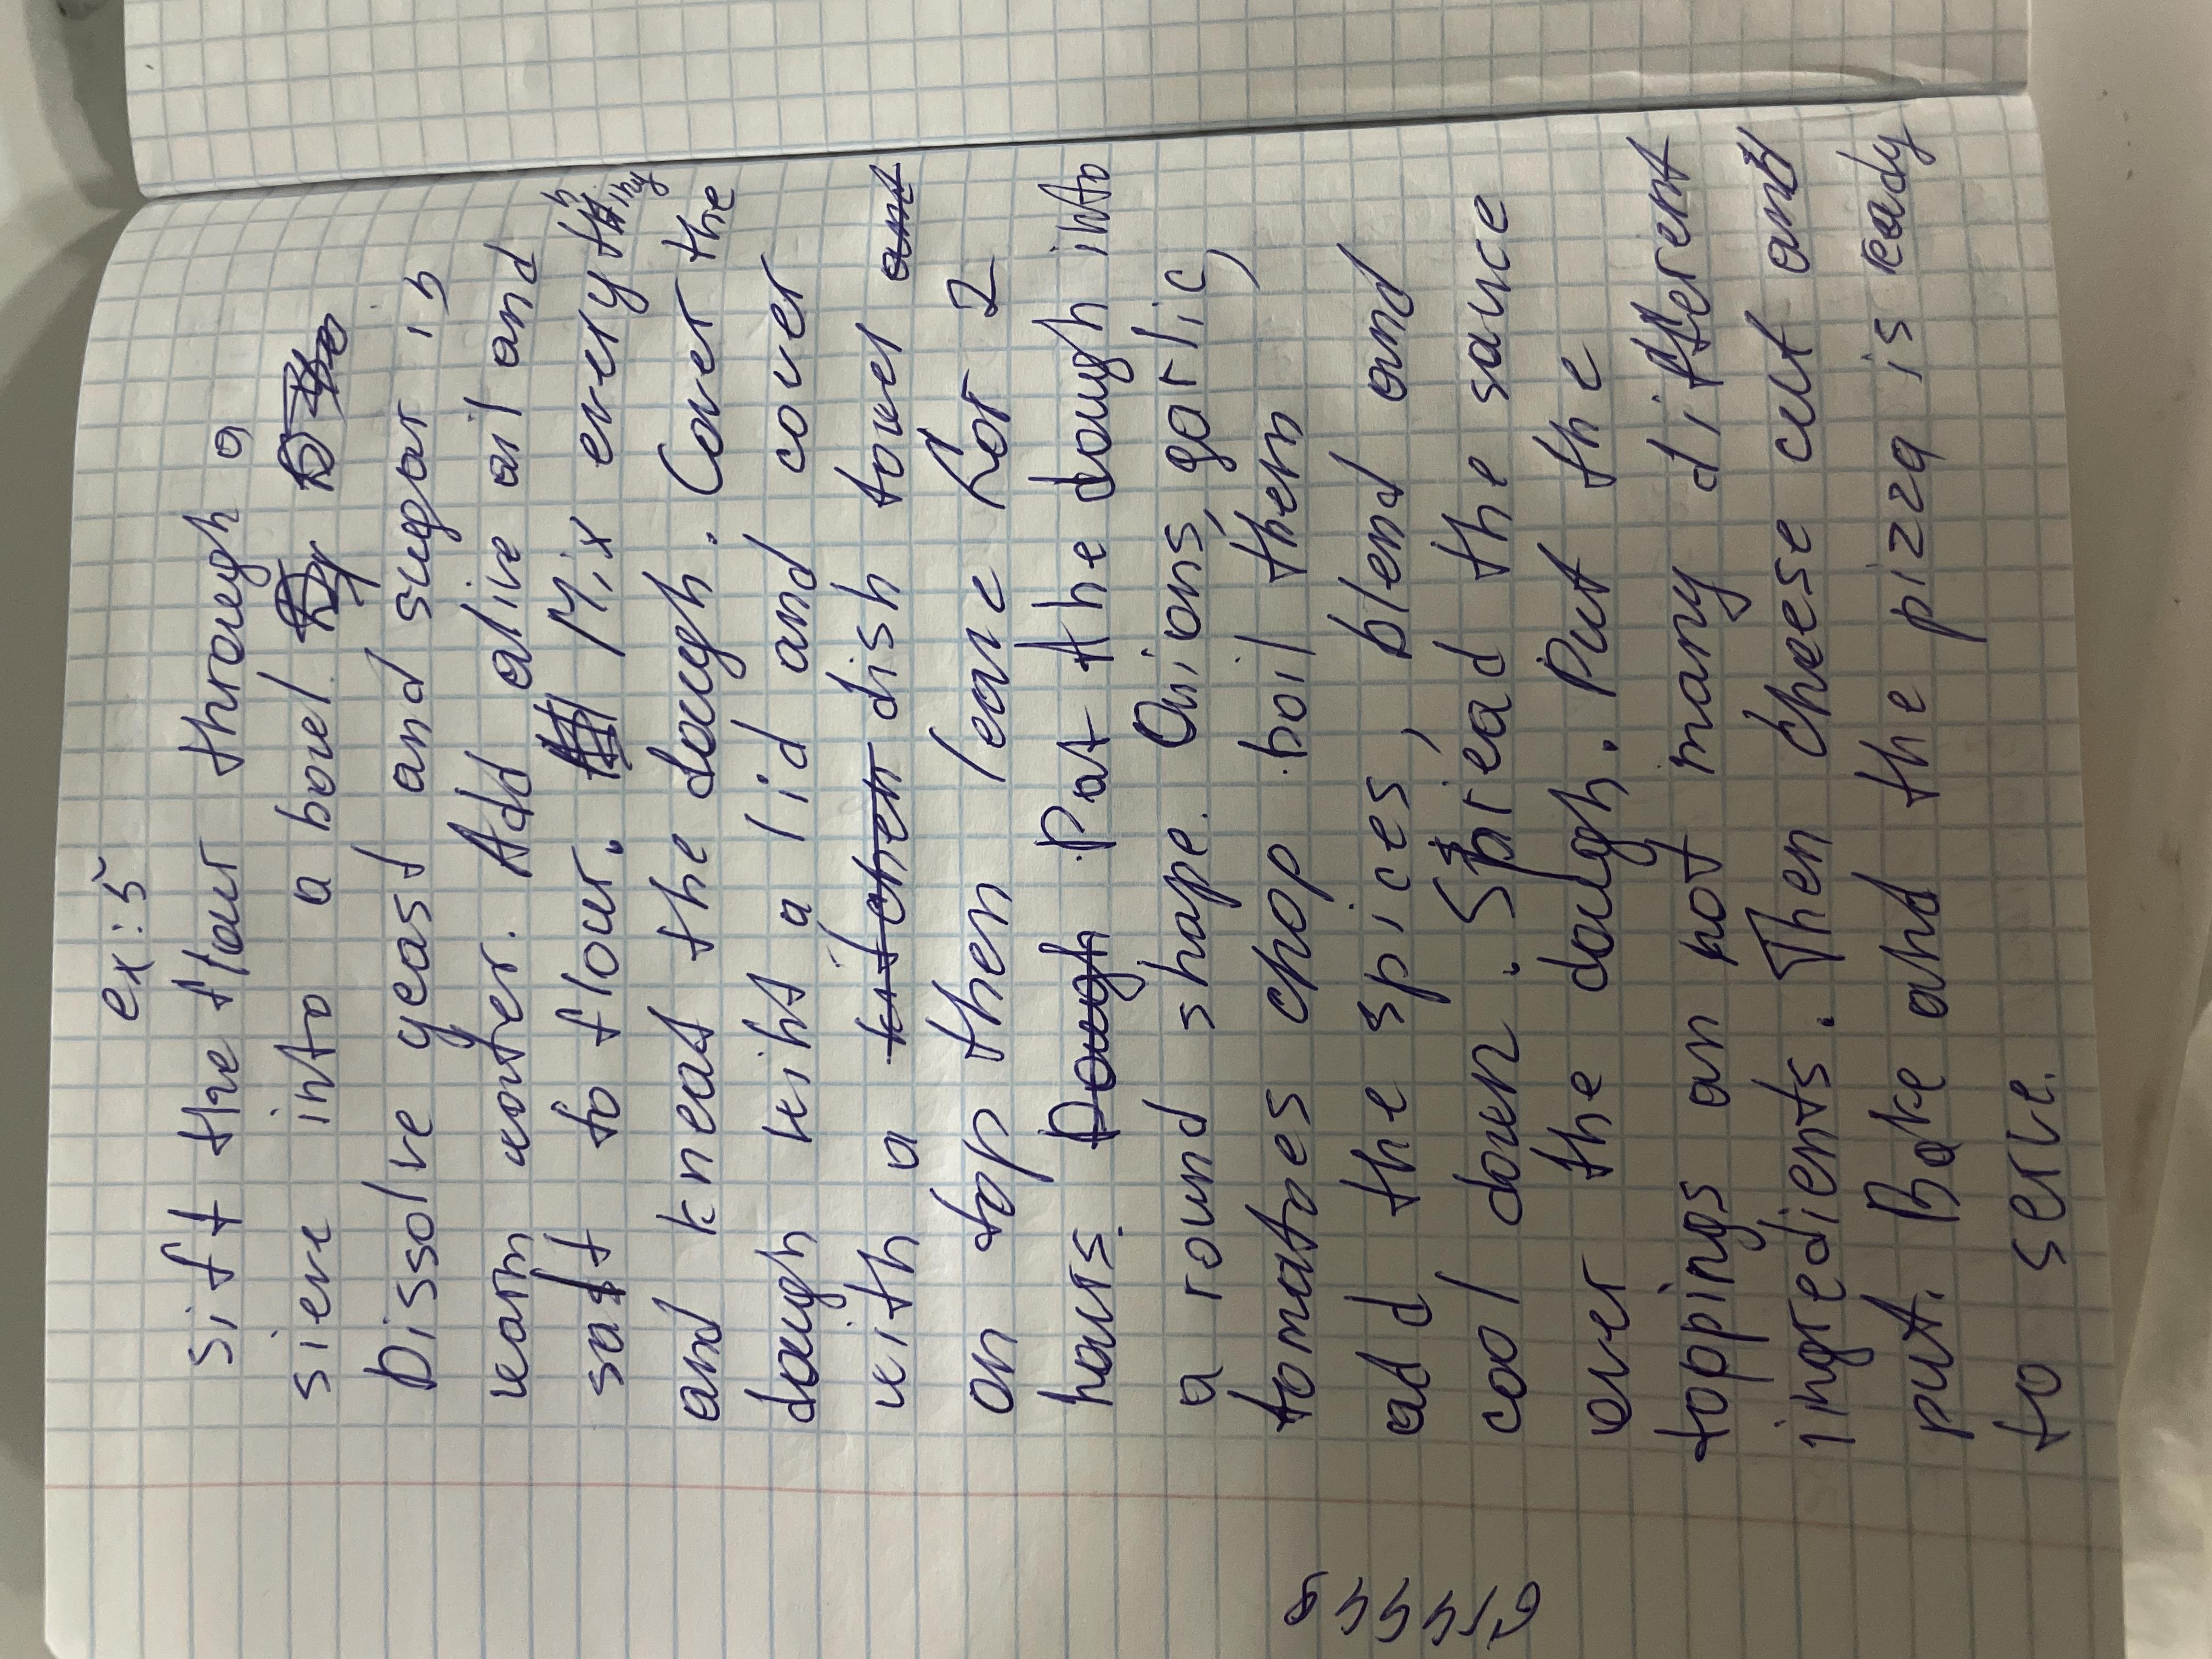 ex: 5
sift the flour through a
sieve into a bowl.
Dissolve yeast and sugar in
warm water. Add olive oil and
salt to flour. Mix everything
and knead the dough. Cover the
dough wiht a lid and cover
with a dish towel
on top then leave for 2
hours. Pat the dough into
a round shape. Onions, garlic,
tomatoes chop boil them
add the spices, blend and
cool down. Spread the sauce
over the dough. Put the
toppings an not many different
ingredients. Then cheese cut and
put. Bake and the pizza is ready
to serve.